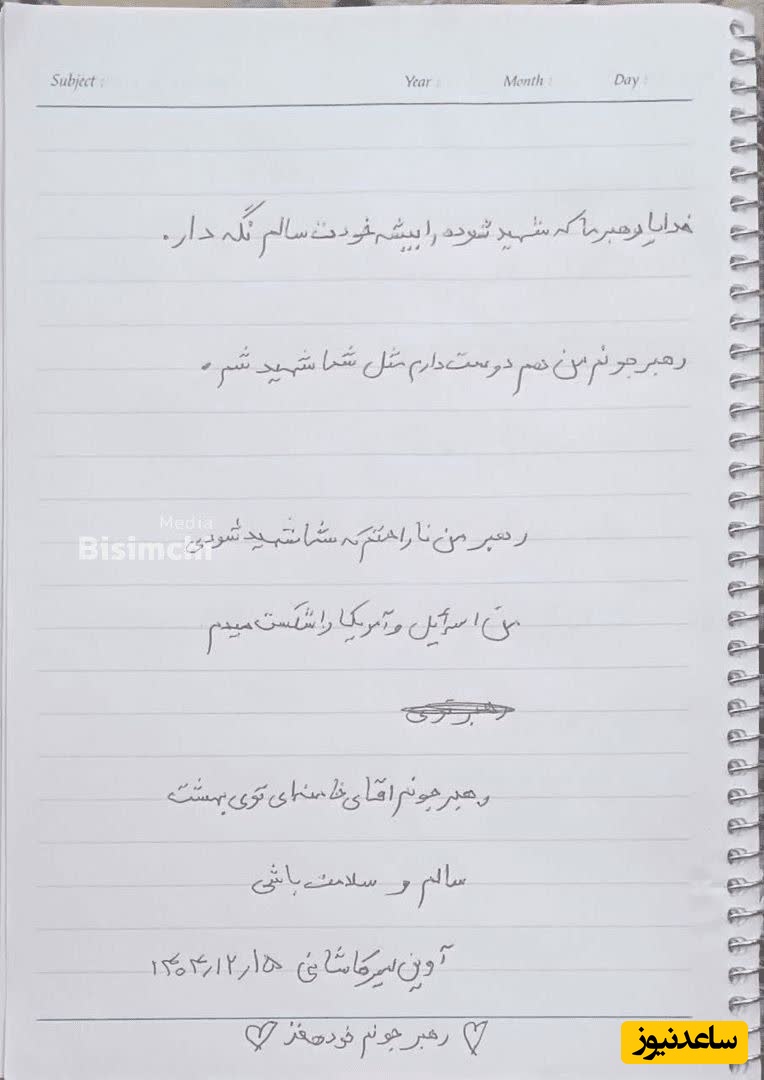 Subject : Year : Month : Day :
خدایا رهبر ما که شهید شوده را پیشه خودت سالم نگه دار.
رهبر جونم من هم دوست دارم مثل شما شهید شم.
رهبر من ناراحتم که شما شهید شودی
Media
Bisimchi
من اسرائیل و آمریکا را شکست میدم
رهبر توی
رهبر جونم آقای خامنه‌ای توی بهشت
سالم و سلامت باشی
آوین میرکاشانی ۱۴۰۴٫۱۲٫۱۵
رهبر جونم خودهافز
ساعدنیوز